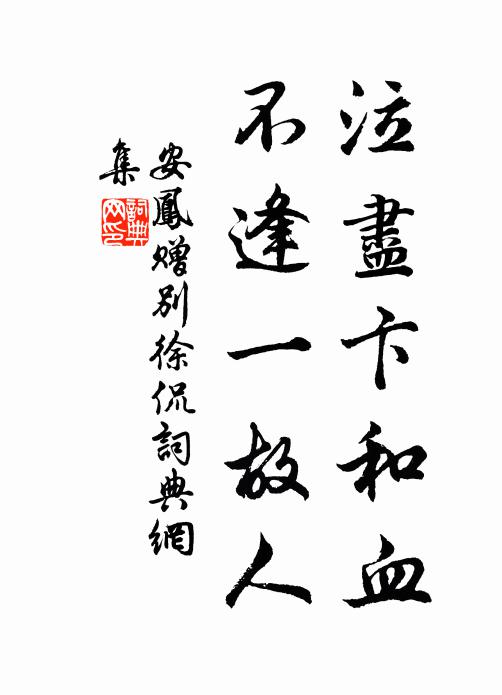 泣盡卞和血
不逢一故人
安鳳贈別徐侃詞典網
集
詞典
网印